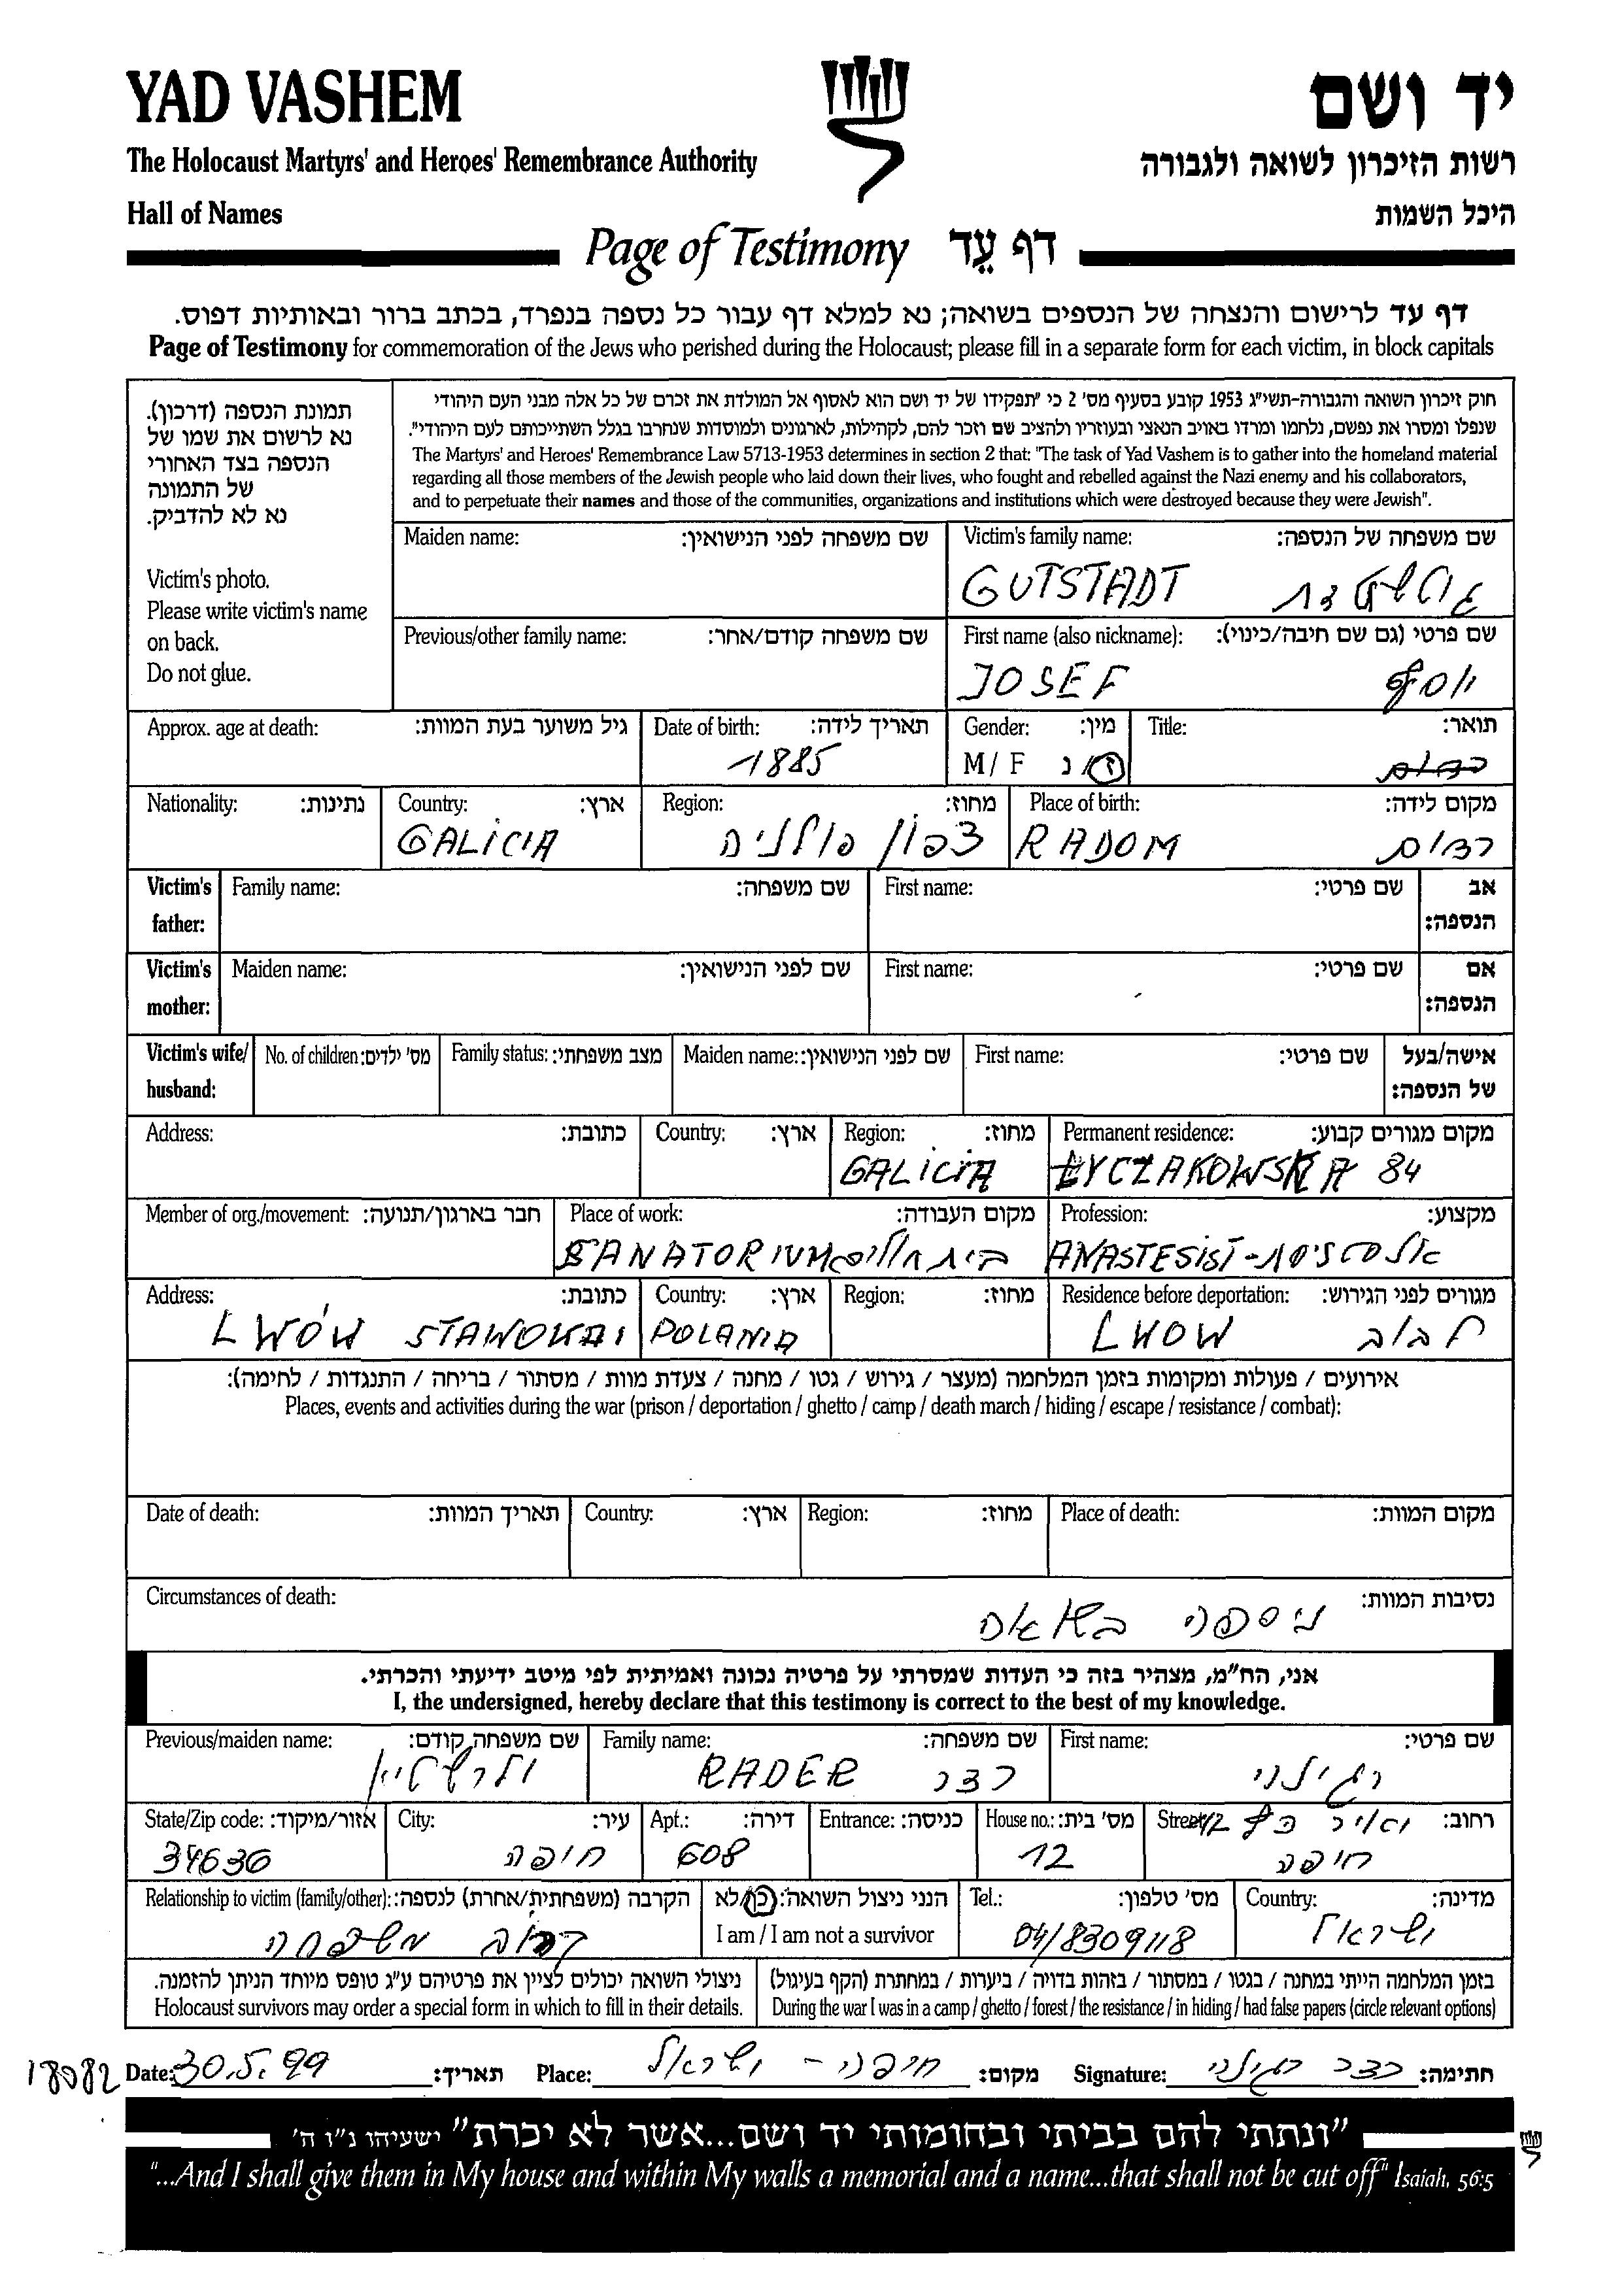 YAD VASHEM
יד ושם
The Holocaust Martyrs' and Heroes' Remembrance Authority
רשות הזיכרון לשואה ולגבורה
Hall of Names
היכל השמות
Page of Testimony דף עֵד
דף עד לרישום והנצחה של הנספים בשואה; נא למלא דף עבור כל נספה בנפרד, בכתב ברור ובאותיות דפוס.
Page of Testimony for commemoration of the Jews who perished during the Holocaust; please fill in a separate form for each victim, in block capitals
תמונת הנספה (דרכון).
נא לרשום את שמו של
הנספה בצד האחורי
של התמונה
נא לא להדביק.
Victim's photo.
Please write victim's name
on back.
Do not glue.
חוק זיכרון השואה והגבורה-תשי"ג 1953 קובע בסעיף מס' 2 כי "תפקידו של יד ושם הוא לאסוף אל המולדת את זכרם של כל אלה מבני העם היהודי
שנפלו ומסרו את נפשם, נלחמו ומרדו באויב הנאצי ובעוזריו ולהציב שם וזכר להם, לקהילות, לארגונים ולמוסדות שנחרבו בגלל השתייכותם לעם היהודי".
The Martyrs' and Heroes' Remembrance Law 5713-1953 determines in section 2 that: "The task of Yad Vashem is to gather into the homeland material
regarding all those members of the Jewish people who laid down their lives, who fought and rebelled against the Nazi enemy and his collaborators,
and to perpetuate their names and those of the communities, organizations and institutions which were destroyed because they were Jewish".
Maiden name: שם משפחה לפני הנישואין:
Victim's family name: שם משפחה של הנספה:
GUTSTADT גוטשטדט
Previous/other family name: שם משפחה קודם/אחר:
First name (also nickname): שם פרטי (גם שם חיבה/כינוי):
JOSEF יוסף
Approx. age at death: גיל משוער בעת המוות:
Date of birth: תאריך לידה:
1885
Gender: מין:
M / F ז / נ
Title: תואר:
Nationality: נתינות:
Country: ארץ:
GALICIA
Region: מחוז:
צפון פולניה
Place of birth: מקום לידה:
RADOM רדום
Victim's father: Family name: שם משפחה: First name: שם פרטי: אב הנספה:
Victim's mother: Maiden name: שם לפני הנישואין: First name: שם פרטי: אם הנספה:
Victim's wife/ husband: No. of children: מס' ילדים: Family status: מצב משפחתי: Maiden name: שם לפני הנישואין: First name: שם פרטי: אישה/בעל של הנספה:
Address: כתובת:
Country: ארץ:
Region: מחוז:
GALICIA
Permanent residence: מקום מגורים קבוע:
ŁYCZAKOWSKA 84
Member of org./movement: חבר בארגון/תנועה:
Place of work: מקום העבודה:
SANATORIUM בית חולים
Profession: מקצוע:
ANASTESIST-
Address: כתובת:
LWÓW
Country: ארץ:
POLANIA
Region: מחוז:
Residence before deportation: מגורים לפני הגירוש:
LWOW לבוב
אירועים / פעולות ומקומות בזמן המלחמה (מעצר / גירוש / גטו / מחנה / צעדת מוות / מסתור / בריחה / התנגדות / לחימה):
Places, events and activities during the war (prison / deportation / ghetto / camp / death march / hiding / escape / resistance / combat):
Date of death: תאריך המוות:
Country: ארץ:
Region: מחוז:
Place of death: מקום המוות:
Circumstances of death: נסיבות המוות:
ניספה בשואה
אני, הח"מ, מצהיר בזה כי העדות שמסרתי על פרטיה נכונה ואמיתית לפי מיטב ידיעתי והכרתי.
I, the undersigned, hereby declare that this testimony is correct to the best of my knowledge.
Previous/maiden name: שם משפחה קודם:
Family name: שם משפחה:
RADER רדר
First name: שם פרטי:
State/Zip code: אזור/מיקוד:
34636
City: עיר:
חיפה
Apt.: דירה:
608
Entrance: כניסה:
House no.: מס' בית:
12
Street: רחוב:
חיפה
Relationship to victim (family/other): הקרבה (משפחתית/אחרת) לנספה:
קרוב משפחה
הנני ניצול השואה: כן/לא
I am / I am not a survivor
Tel.: מס' טלפון:
04/8309118
Country: מדינה:
ישראל
ניצולי השואה יכולים לציין את פרטיהם ע"ג טופס מיוחד הניתן להזמנה.
Holocaust survivors may order a special form in which to fill in their details.
בזמן המלחמה הייתי במחנה / בגטו / במסתור / בזהות בדויה / ביערות / במחתרת (הקף בעיגול)
During the war I was in a camp / ghetto / forest / the resistance / in hiding / had false papers (circle relevant options)
18082
Date: 30.5.99 תאריך:
Place: חיפה - ישראל מקום:
Signature: רדר חתימה:
"ונתתי להם בביתי ובחומותי יד ושם...אשר לא יכרת" ישעיהו נ"ו ה'
"...And I shall give them in My house and within My walls a memorial and a name...that shall not be cut off" Isaiah, 56:5